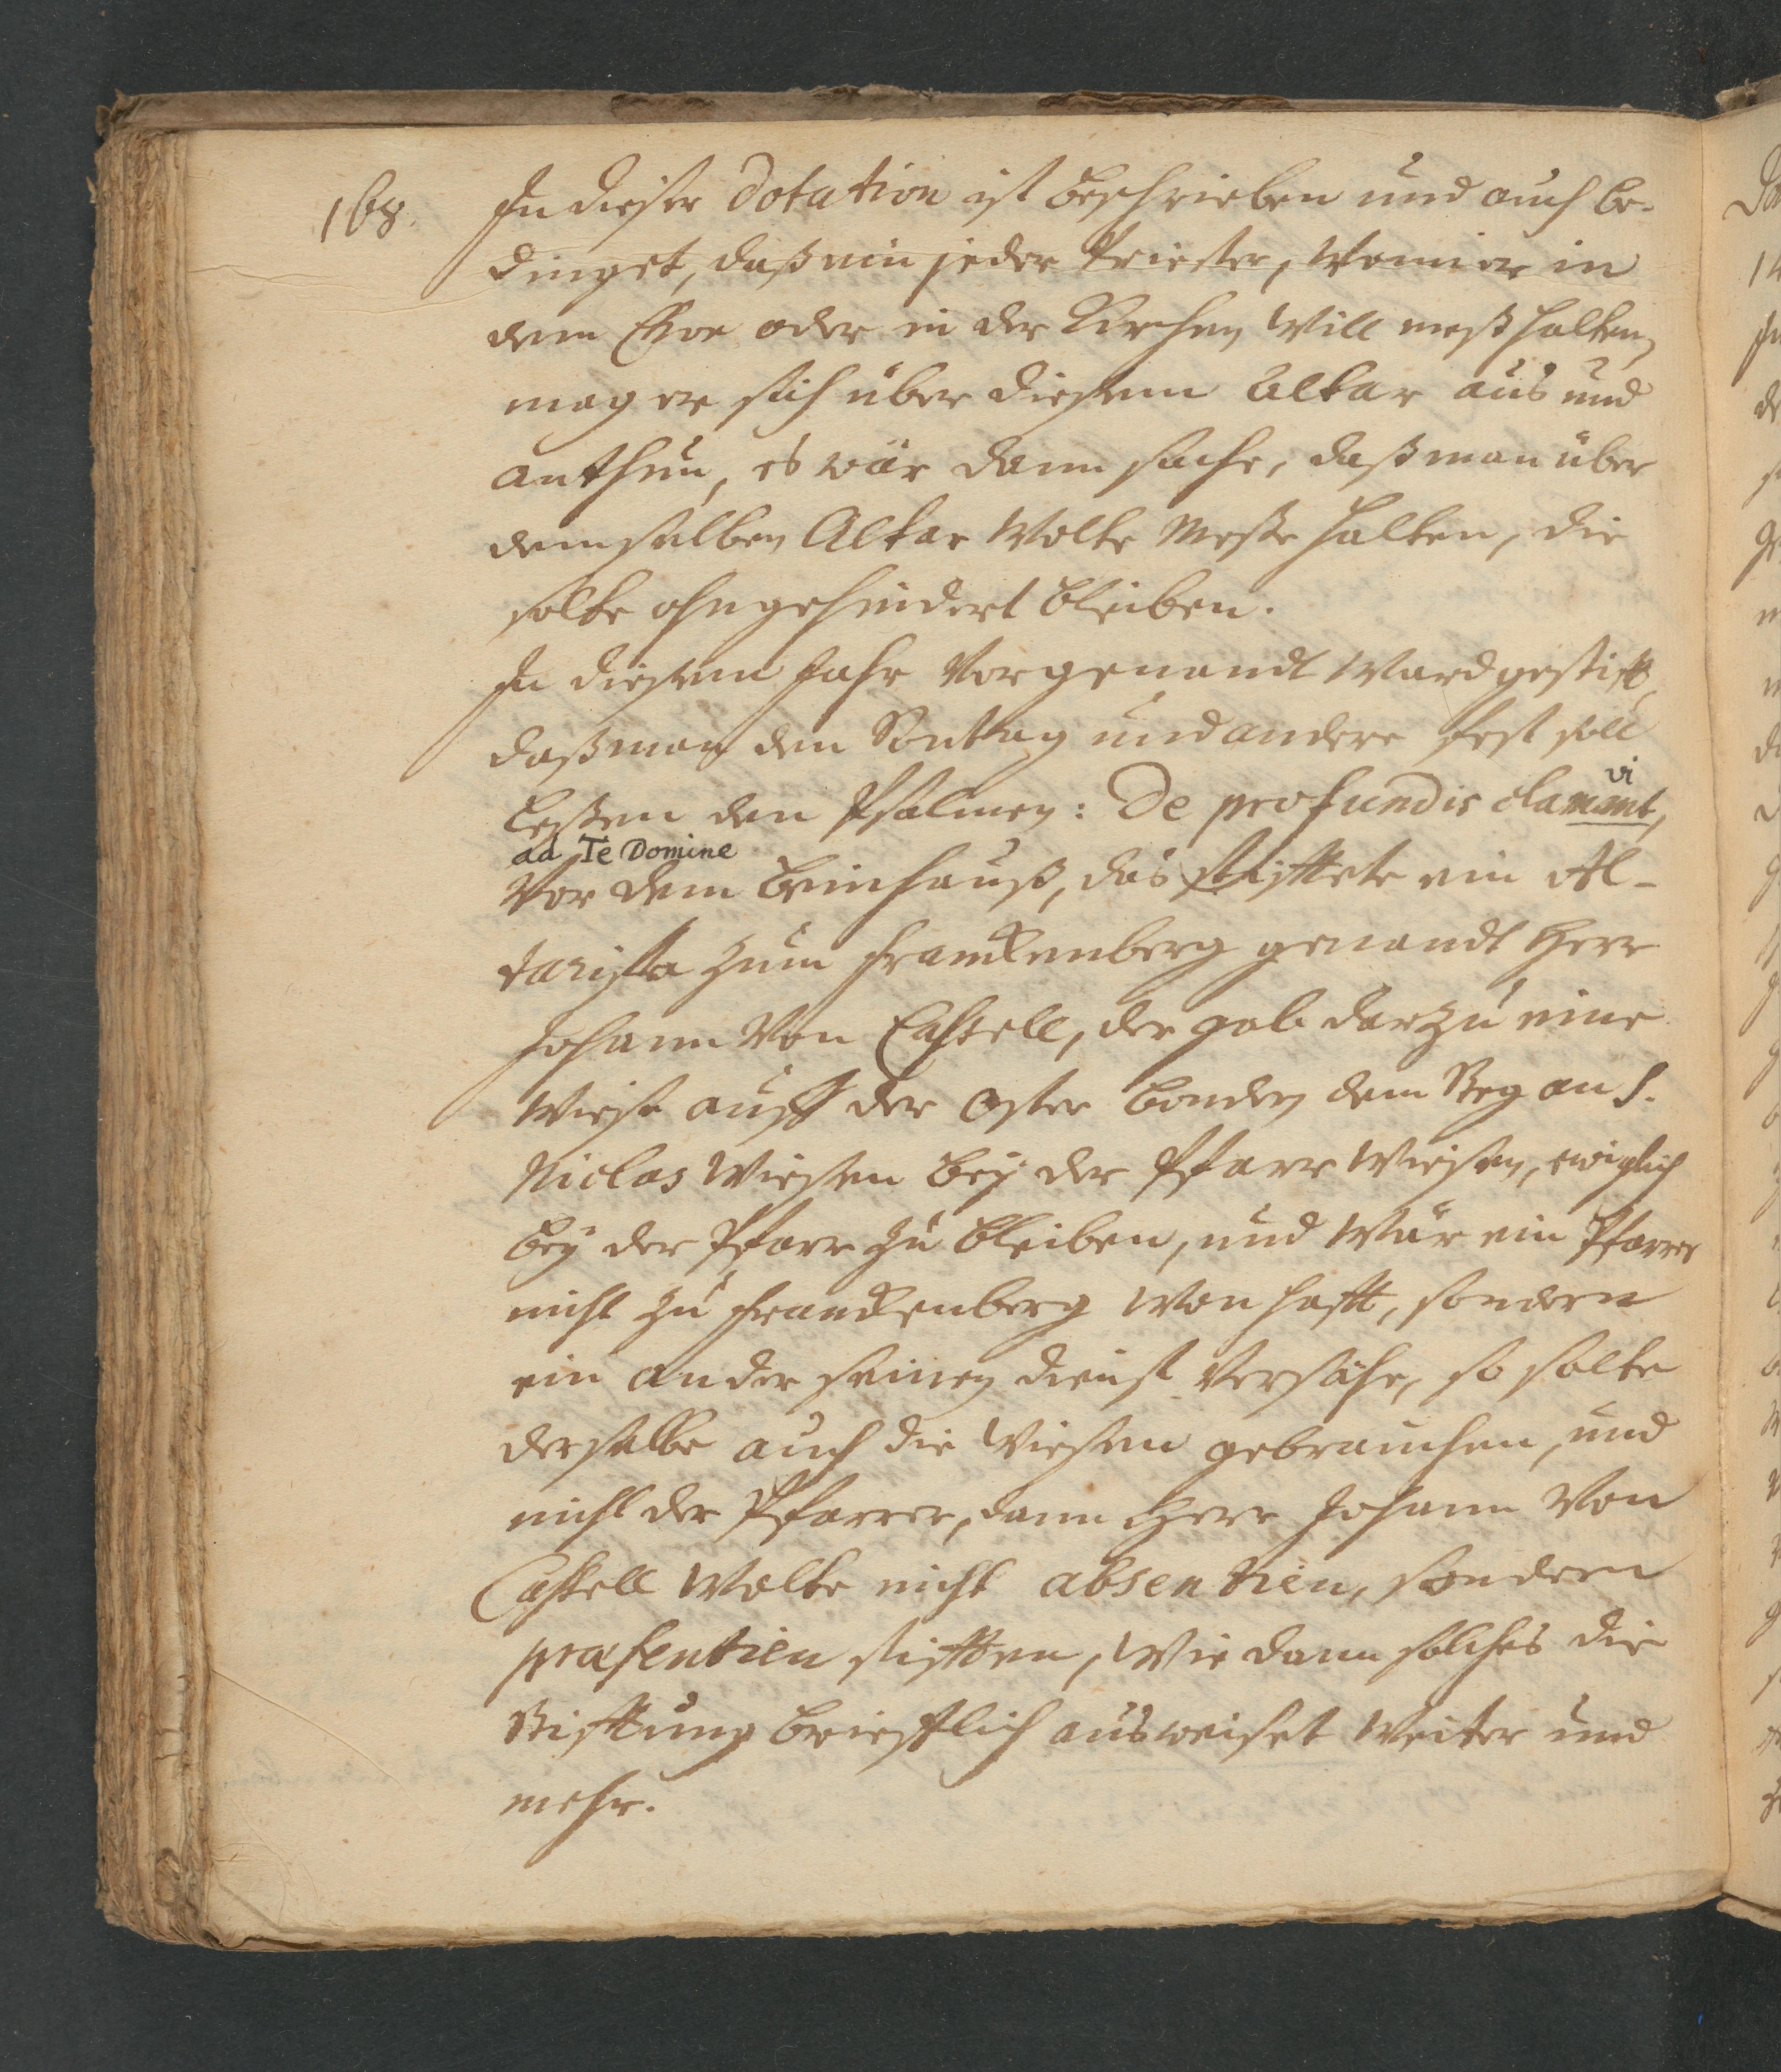 168.
In dieser Dotation ist beschrieben und auch be-
dinget, daß ein jeder Priester, Wenn er in
dem Chor oder in der Kirchen Will meß halten,
mag er sich über diesem Altar aus und
anthun, es wär dann sache, daß man über
demselben Altar Wolte Messe halten, die
solte ohngehindert bleiben.
In diesem Jahr Vorgenandt Ward gestifft,
daß man den Sontag und andere fest soll
leßen den Psalmen: De profundis clamant,
vi
ad Te Domine
Vor dem beinhauß, das stifftete ein Al-
tarista zum Franckenberg genandt Herr
Johann Von Cassell, der gab darzu eine
Wiese auff der Oster benden dem Steg an S.
Niclas Wiesen bey der Pfarr Wiesen, ewiglich
bey der Pfarr zu bleiben, und Wär ein Pfarrer
nicht zu Franckenberg Wonhafft, sondern
ein ander seinen dienst Versähe, so solte
derselbe auch die Wiesen gebrauchen, und
nicht der Pfarrer, dann Herr Johann Von
Cassell Wolte nicht absentien, sondern
præsentien stifften, Wie dann solches die
Stifftung brieflich ausweiset Weiter und
mehr.